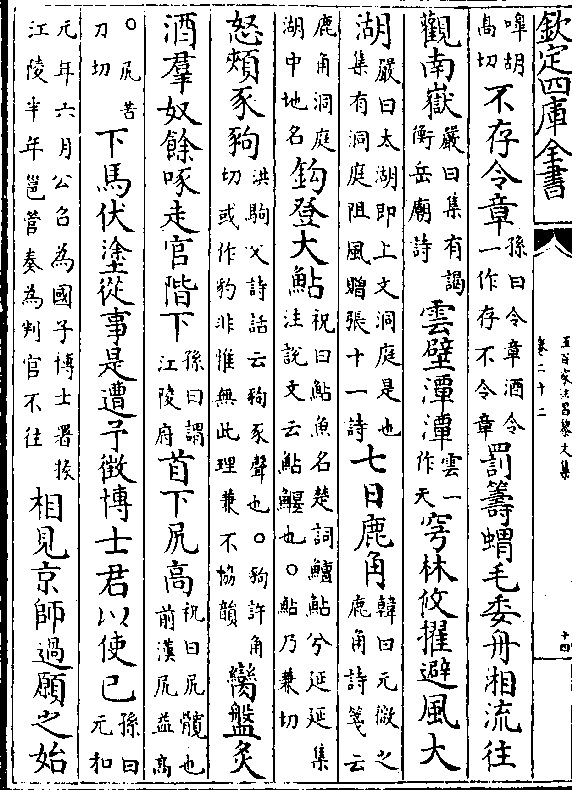 欽定四庫全書
五百家注昌黎文集
卷二十二
十四
嘷胡高切不存令章孫曰令章酒令一作存不令章罰籌蝟毛委舟湘流往
觀南嶽嚴曰集有謁衡岳廟詩雲壁潭潭雲一作天穹林攸擢避風大
湖嚴曰太湖即上文洞庭是也集有洞庭阻風贈張十一詩七日鹿角韓曰元微之鹿角詩箋云
鹿角洞庭湖中地名鈎登大鮎祝曰鮎魚名楚詞鱣鮎兮延延集注説文云鮎鰋也〇鮎乃兼切
怒頰豕豿洪駒父詩話云豿豕聲也〇豿許角切或作豹非惟無此理兼不協韻臠盤炙
酒羣奴餘啄走官階下孫曰謂江陵府首下尻高祝曰尻髖也前漢尻益高
〇尻苦刀切下馬伏塗從事是遭予徴博士君以使已孫曰元和
元年六月公召為國子博士署掾江陵半年邕管奏為判官不往相見京師過願之始